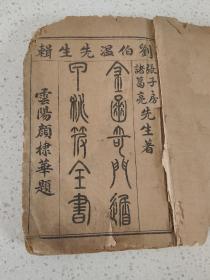 劉伯温先生輯
張子房
諸葛亮
先生著
金函奇門遁
甲祕笈全書
雲陽顏棣華題